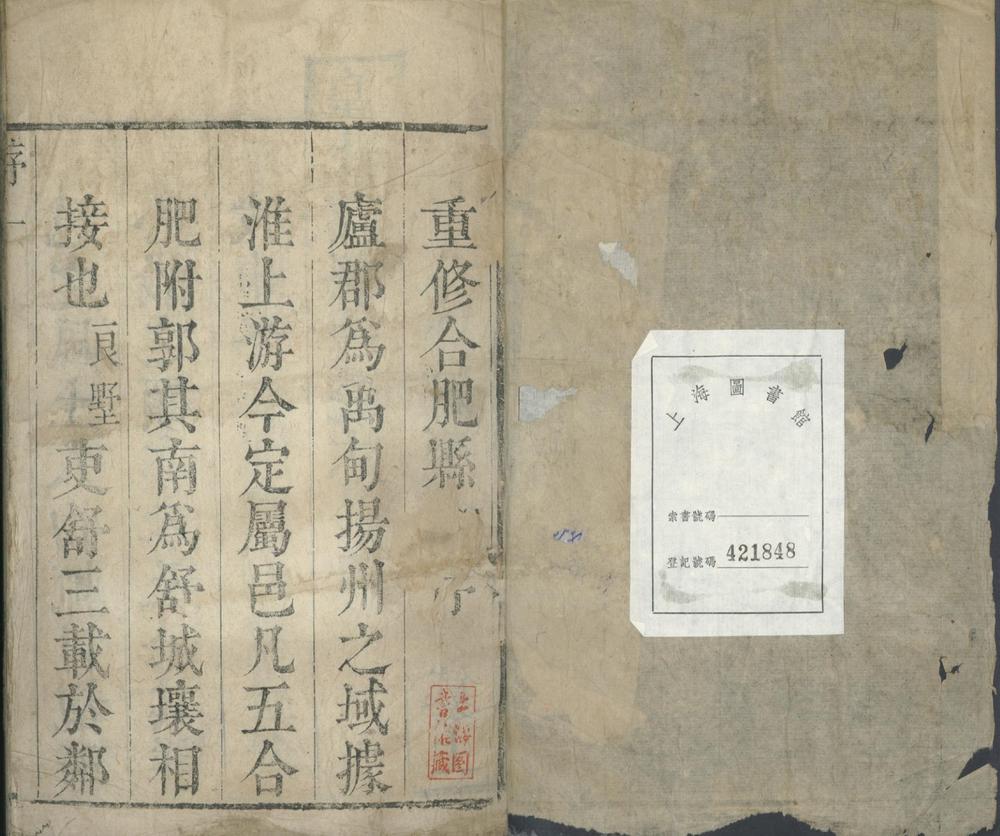 上海圖書館
索書號碼
登記號碼 421848
重修合肥縣
上海图
書館藏
廬郡爲禹甸揚州之域據
淮上游今定屬邑凡五合
肥附郭其南爲舒城壤相
接也良墅吏舒三載於鄰
序 一